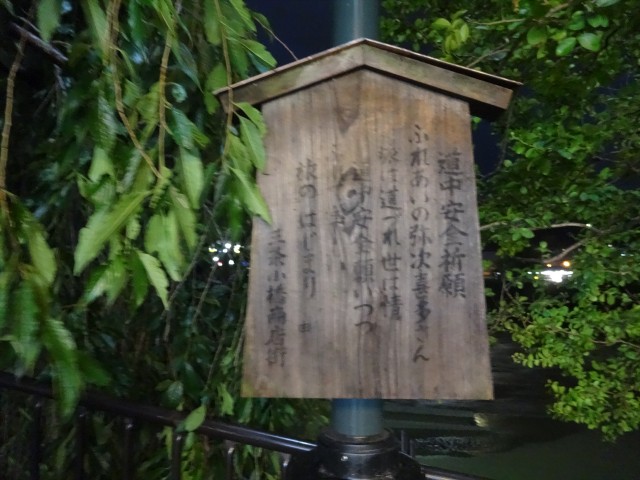 道中安全祈願
ふれあいの弥次喜多さん
旅は道づれ世は情
道中安全願いつつ
旅のはじまり
三条小橋商店街